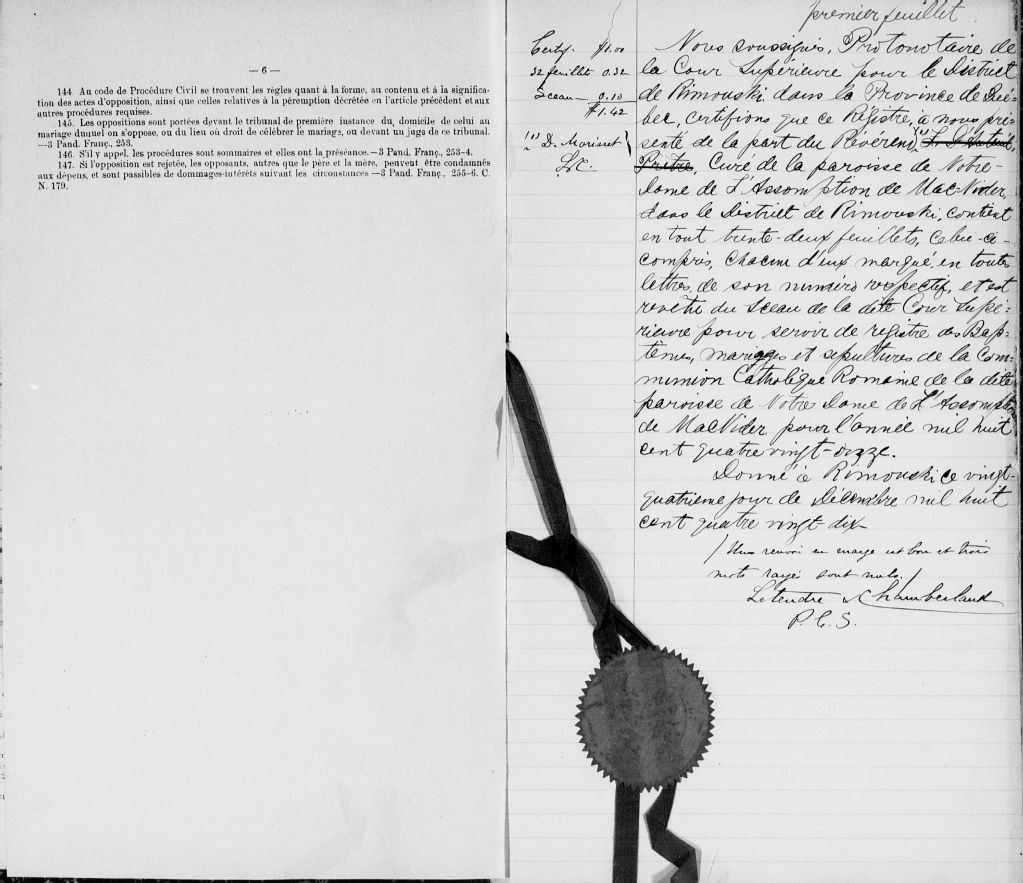 — 6 —
144. Au code de Procédure Civil se trouvent les règles quant à la forme, au contenu et à la significa-
tion des actes d'opposition, ainsi que celles relatives à la péremption décrétée en l'article précédent et aux
autres procédures requises.
145. Les oppositions sont portées devant le tribunal de première instance du, domicile de celui au
mariage duquel on s'oppose, ou du lieu où droit de célébrer le mariage, ou devant un juge de ce tribunal.
—3 Pand. Franç., 253.
146. S'il y appel, les procédures sont sommaires et elles ont la préséance.—3 Pand. Franç., 253-4.
147. Si l'opposition est rejetée, les opposants, autres que le père et la mère, peuvent être condamnés
aux dépens, et sont passibles de dommages-intérêts suivant les circonstances —3 Pand. Franç., 255-6. C.
N. 179.
premier feuillet
Certif. $1.00
32 feuillets 0.32
Sceau — 0.10
$1.42
(1) D. Morisset
Nous soussignés, Protonotaire de
la Cour Supérieure pour le District
de Rimouski dans la Province de Qué=
bec, certifions que ce Régistre, à nous pré=
senté de la part du Révérend (1)
Prêtre, Curé de la paroisse de Notre-
Dame de L'Assomption de MacNider,
dans le District de Rimouski, contient
en tout trente-deux feuillets, celui-ci
compris, chacun d'eux marqué, en toutes
lettres, de son numéro respectif, et est
revêtu du Sceau de la dite Cour Supé=
rieure pour servir de régistre des Bap=
têmes, mariages et sépultures de la Com=
munion Catholique Romaine de la dite
paroisse de Notre Dame de L'Assomption
de MacNider, pour l'année mil huit
cent quatre vingt-onze.
Donné à Rimouski ce vingt-
quatrième jour de Décembre mil huit
cent quatre vingt dix—
/ Un renvoi en marge est bon et trois
mots rayés sont nuls. /
Letendre & Chamberland
P. C. S.